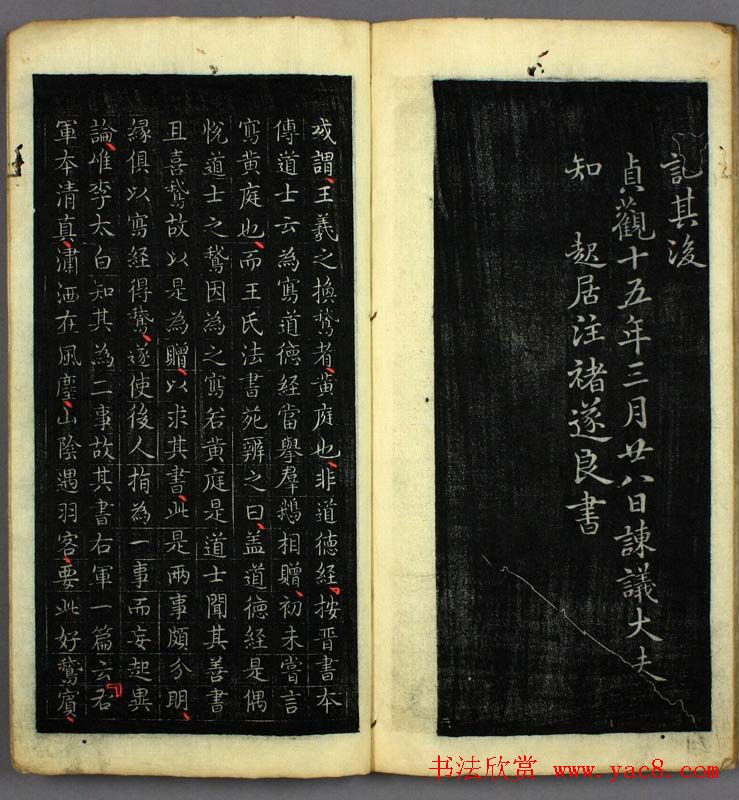 記其後
貞觀十五年三月廿八日諫議大夫
知　起居注褚遂良書
或謂王羲之換鵞者黃庭也非道德經按晉書本
傳道士云為寫道德經當舉羣鵝相贈初未嘗言
寫黃庭也而王氏法書苑辨之曰盖道德經是偶
悅道士之鵞因為之寫若黃庭是道士聞其善書
且喜鵞故以是為贈以求其書此是兩事頗分明
緣俱以寫經得鵞遂使後人指為一事而妄起異
論惟李太白知其為二事故其書右軍一篇云右
軍本清真瀟洒在風塵山陰遇羽客要此好鵞賓
书法欣赏 www.yac8.com